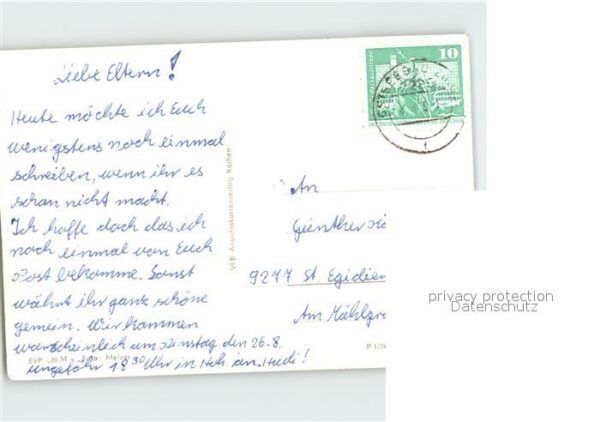 Liebe Eltern!
Heute möchte ich Euch
wenigstens noch einmal
schreiben, wenn ihr es
schon nicht macht.
Ich hoffe doch das ich
noch einmal von Euch
Post bekomme. Sonst
währt ihr ganz schöne
gemein. Wir kommen
warscheinlich am Dinstag den 26.8.
ungefähr 19 30 Uhr in Hoh an. Heidi!
EVP -,20 M Foto:
VEB Ansichtskartenverlag Köthen
P 1/74
10
An
Günther
9277 St. Egidien
Am
privacy protection
Datenschutz